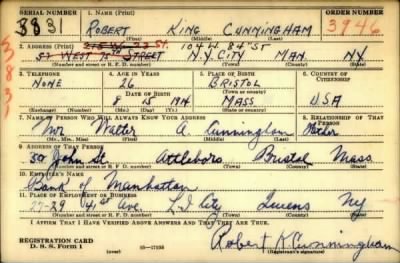 SERIAL NUMBER 1. NAME (Print) ORDER NUMBER
3831 ROBERT KING CUNNINGHAM 3946
(First) (Middle) (Last)
2. ADDRESS (Print) 215 W. 23 ST. 104 W. 84th ST
57 WEST 75th STREET N.Y. CITY MAN. NY
(Number and street or R. F. D. number) (Town) (County) (State)
3831
3. TELEPHONE 4. AGE IN YEARS 5. PLACE OF BIRTH 6. COUNTRY OF CITIZENSHIP
NONE 26 BRISTOL
DATE OF BIRTH (Town or county)
8 15 1914 MASS USA
(Exchange) (Number) (Mo.) (Day) (Yr.) (State or country)
7. NAME OF PERSON WHO WILL ALWAYS KNOW YOUR ADDRESS 8. RELATIONSHIP OF THAT PERSON
Mr Walter A. Cunningham Father
(Mr., Mrs., Miss) (First) (Middle) (Last)
9. ADDRESS OF THAT PERSON
John St. Attleboro Bristol Mass.
(Number and street or R. F. D. number) (Town) (County) (State)
10. EMPLOYER'S NAME
Bank of Manhattan
11. PLACE OF EMPLOYMENT OR BUSINESS
27-29 41st Ave. L.I. City Queens NY
(Number and street or R. F. D. number) (Town) (County) (State)
I AFFIRM THAT I HAVE VERIFIED ABOVE ANSWERS AND THAT THEY ARE TRUE.
REGISTRATION CARD
D. S. S. Form 1 (over) 16—17105 Robert K. Cunningham
(Registrant's signature)